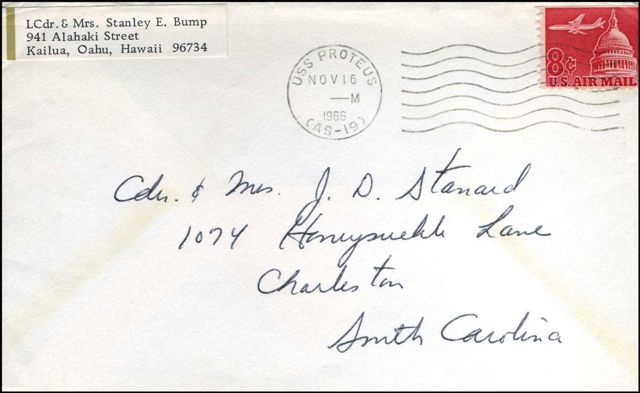 LCdr. & Mrs. Stanley E. Bump
941 Alahaki Street
Kailua, Oahu, Hawaii 96734
USS PROTEUS
NOV 16
—M
1966
(AS-19)
8¢
U.S. AIR MAIL
Cdr. & Mrs. J. D. Stanard
1074 Honeysuckle Lane
Charleston
South Carolina